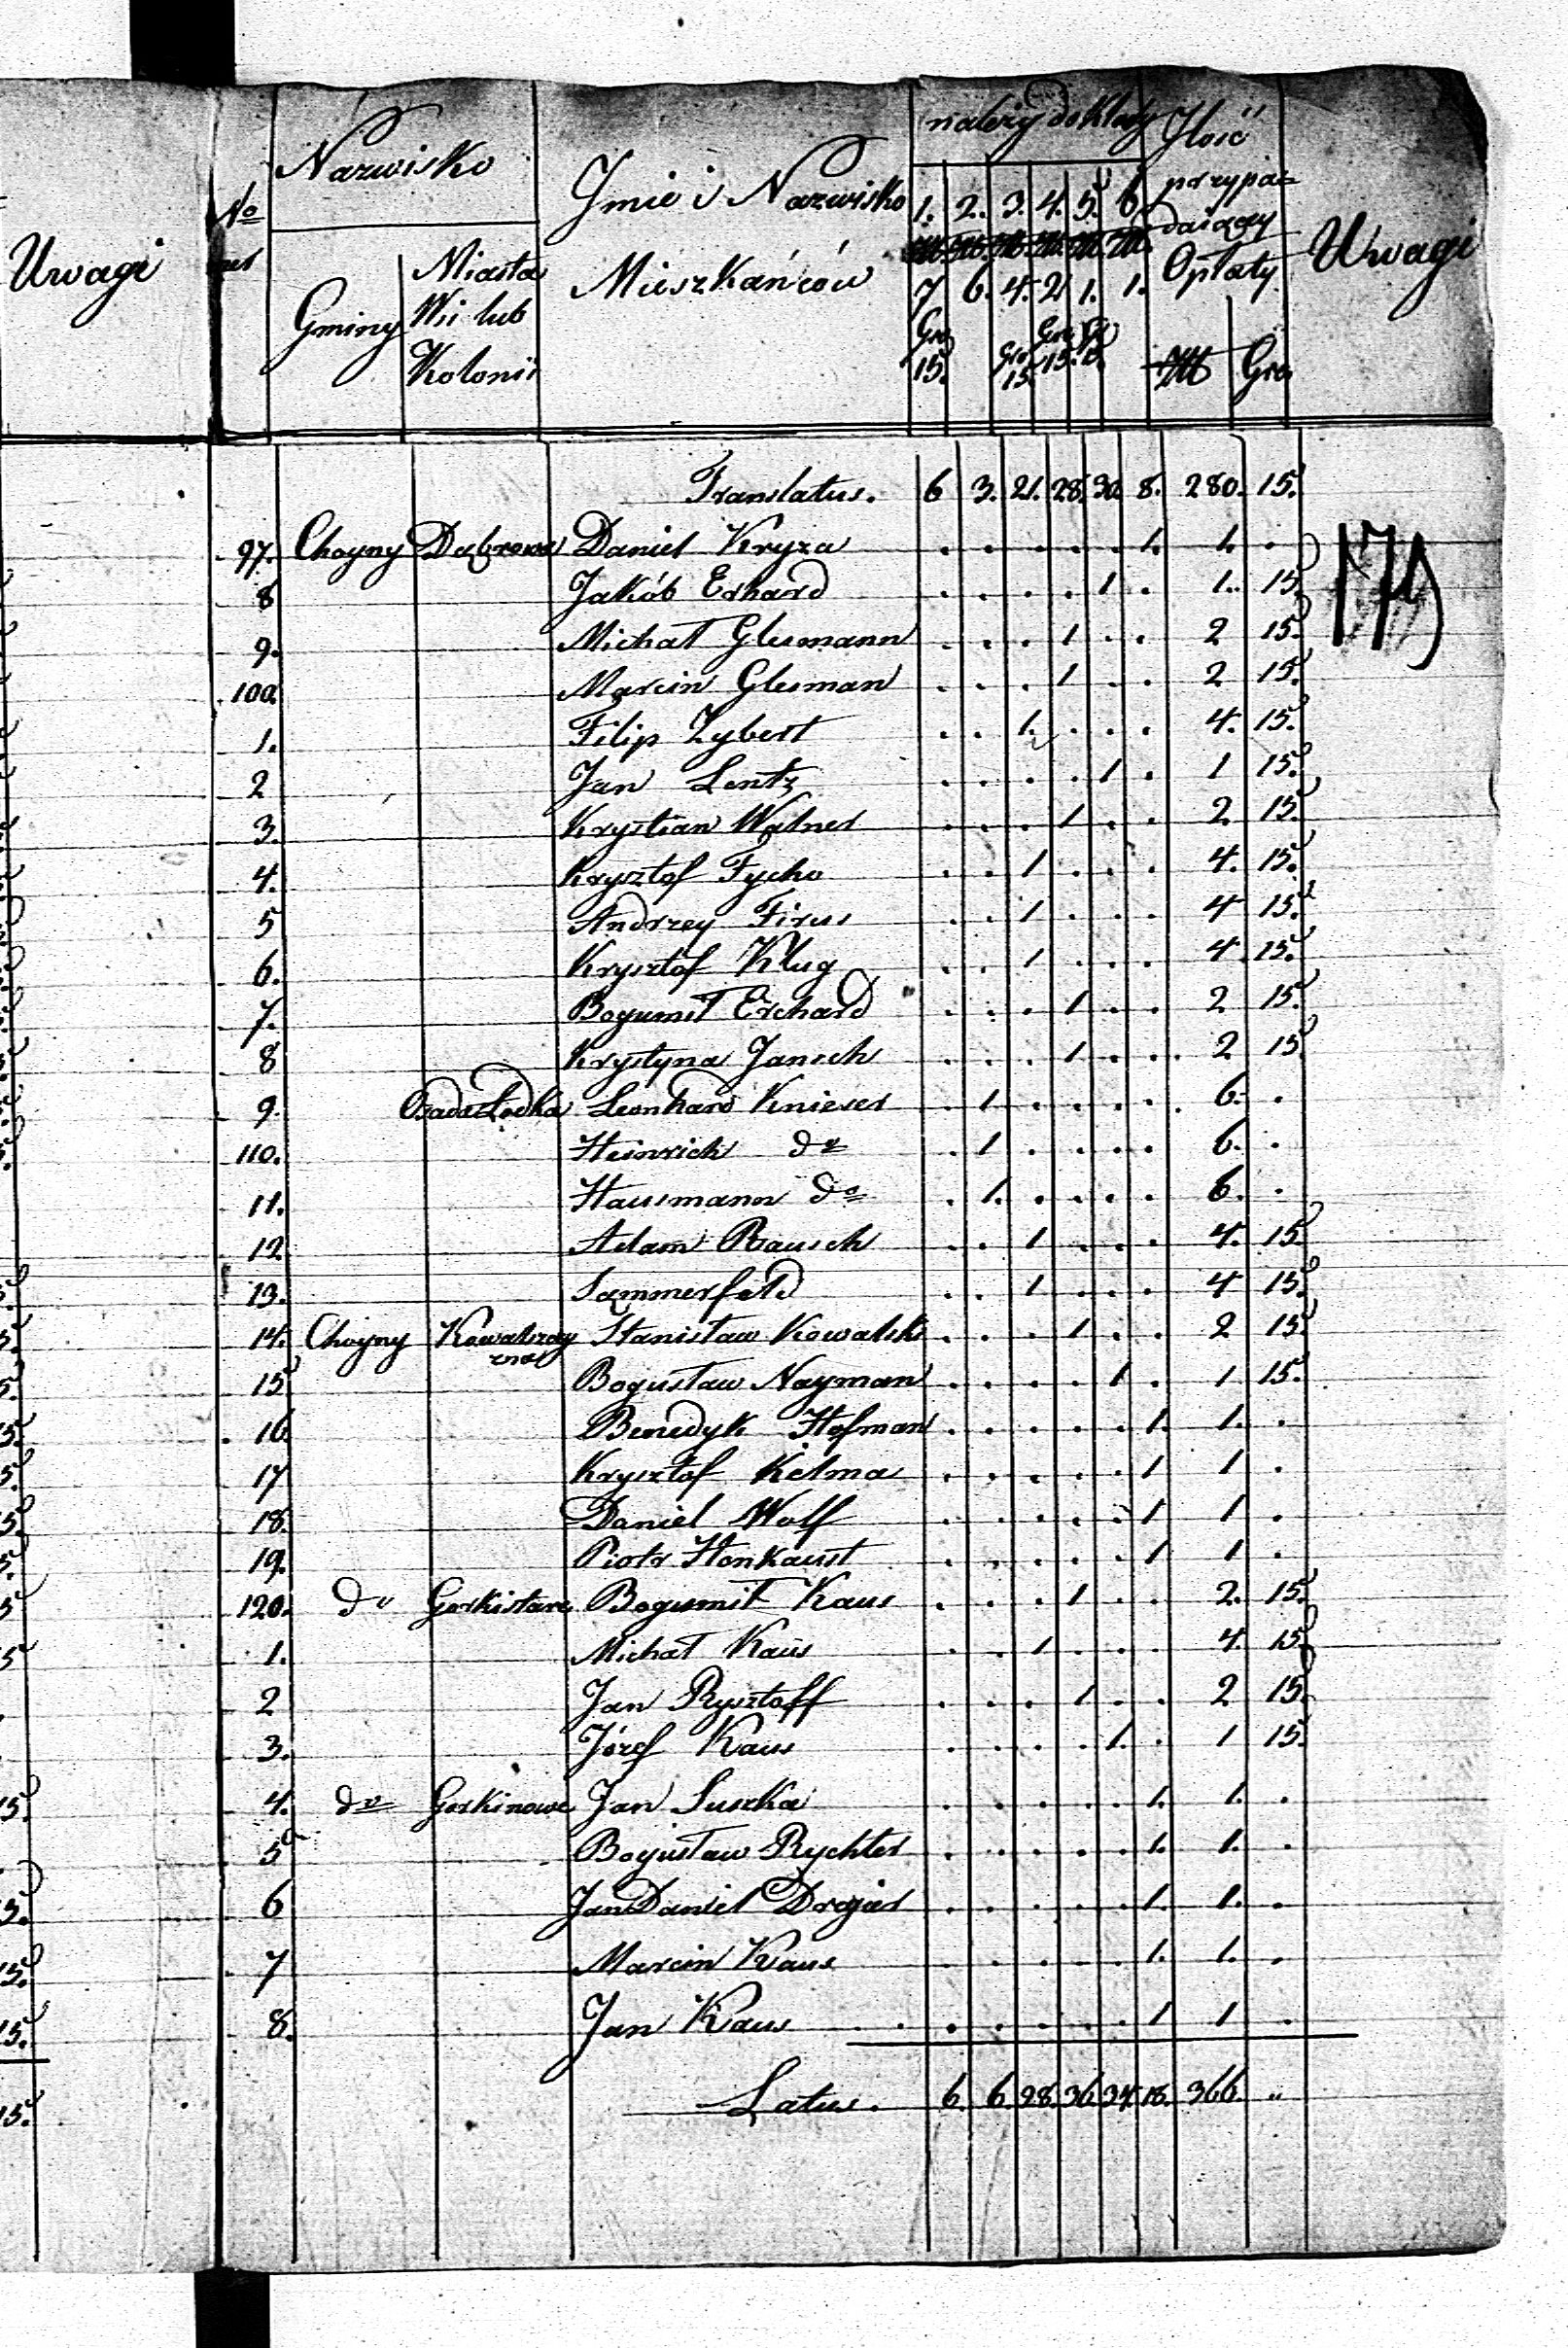 Uwagi
No
Nazwisko
Gminy
Miasta
Wsi lub
Kolonii
Jmie i Nazwisko
Mieszkańców
należy do Klasy
1. 2. 3. 4. 5. 6.
7 6. 4. 2 1. 1.
Gro Gro Gro Gr
15. 15 15. 15.
Jlość
przypa=
daiącey
Opłaty
Złł Gro
Uwagi
179
Translatus. 6 3. 21. 28. 30. 8. 280. 15.
97. Choyny Dąbrowa Daniel Kryza . . . . . 1. 1. .
8 Jakób Erhard . . . . 1 . 1. 15.
9. Michał Glesmann . . . 1 . . 2 15.
100. Marcin Glesman . . . 1 . . 2 15.
1. Filip Zybert . . 1. . . . 4. 15.
2 Jan Lentz . . . . 1 . 1 15.
3. Krystian Walner . . . 1 . . 2. 15.
4. Krysztof Tycho . . 1 . . . 4. 15.
5 Andrzey Firus . . 1 . . . 4 15.
6. Krysztof Klug . . 1 . . . 4 15.
7. Bogumił Erchard . . . 1 . . 2 15.
8 Krystyna Jansch . . . 1 . . 2 15
9. Osada Łodka Leonhard Knieser . 1 . . . . 6. .
110. Heinrich do . 1 . . . . 6. .
11. Hausmann do . 1. . . . . 6. .
12. Adam Rausch . . 1 . . . 4. 15.
13. Sammerfeld . . 1 . . . 4 15.
14. Choyny Kowalszczyzna Stanisław Kowalski . . . 1 . . 2 15.
15 Bogusław Nayman . . . . 1 . 1 15.
16. Benedyk Hofman . . . . . 1. 1. .
17 Krysztof Kelma . . . . . 1 1 .
18. Daniel Wolf . . . . . 1 1 .
19. Piotr Henkaust . . . . . 1 1 .
120. do Gorkistare Bogumił Kaus . . . 1 . . 2. 15.
1. Michał Kaus . . 1 . . . 4. 15.
2 Jan Rysztoff . . . 1 . . 2 15.
3. Józef Kaus . . . . 1. . 1 15.
4. do Gorkinowe Jan Suszka . . . . . 1. 1. .
5 Bogusław Rychter . . . . . 1. 1. .
6 Jan Daniel Drajer . . . . . 1. 1. .
7 Marcin Kraus . . . . . 1. 1. .
8. Jan Kraus . . . . . 1 1 .
Latus. 6. 6. 28. 36. 34. 18. 366. "